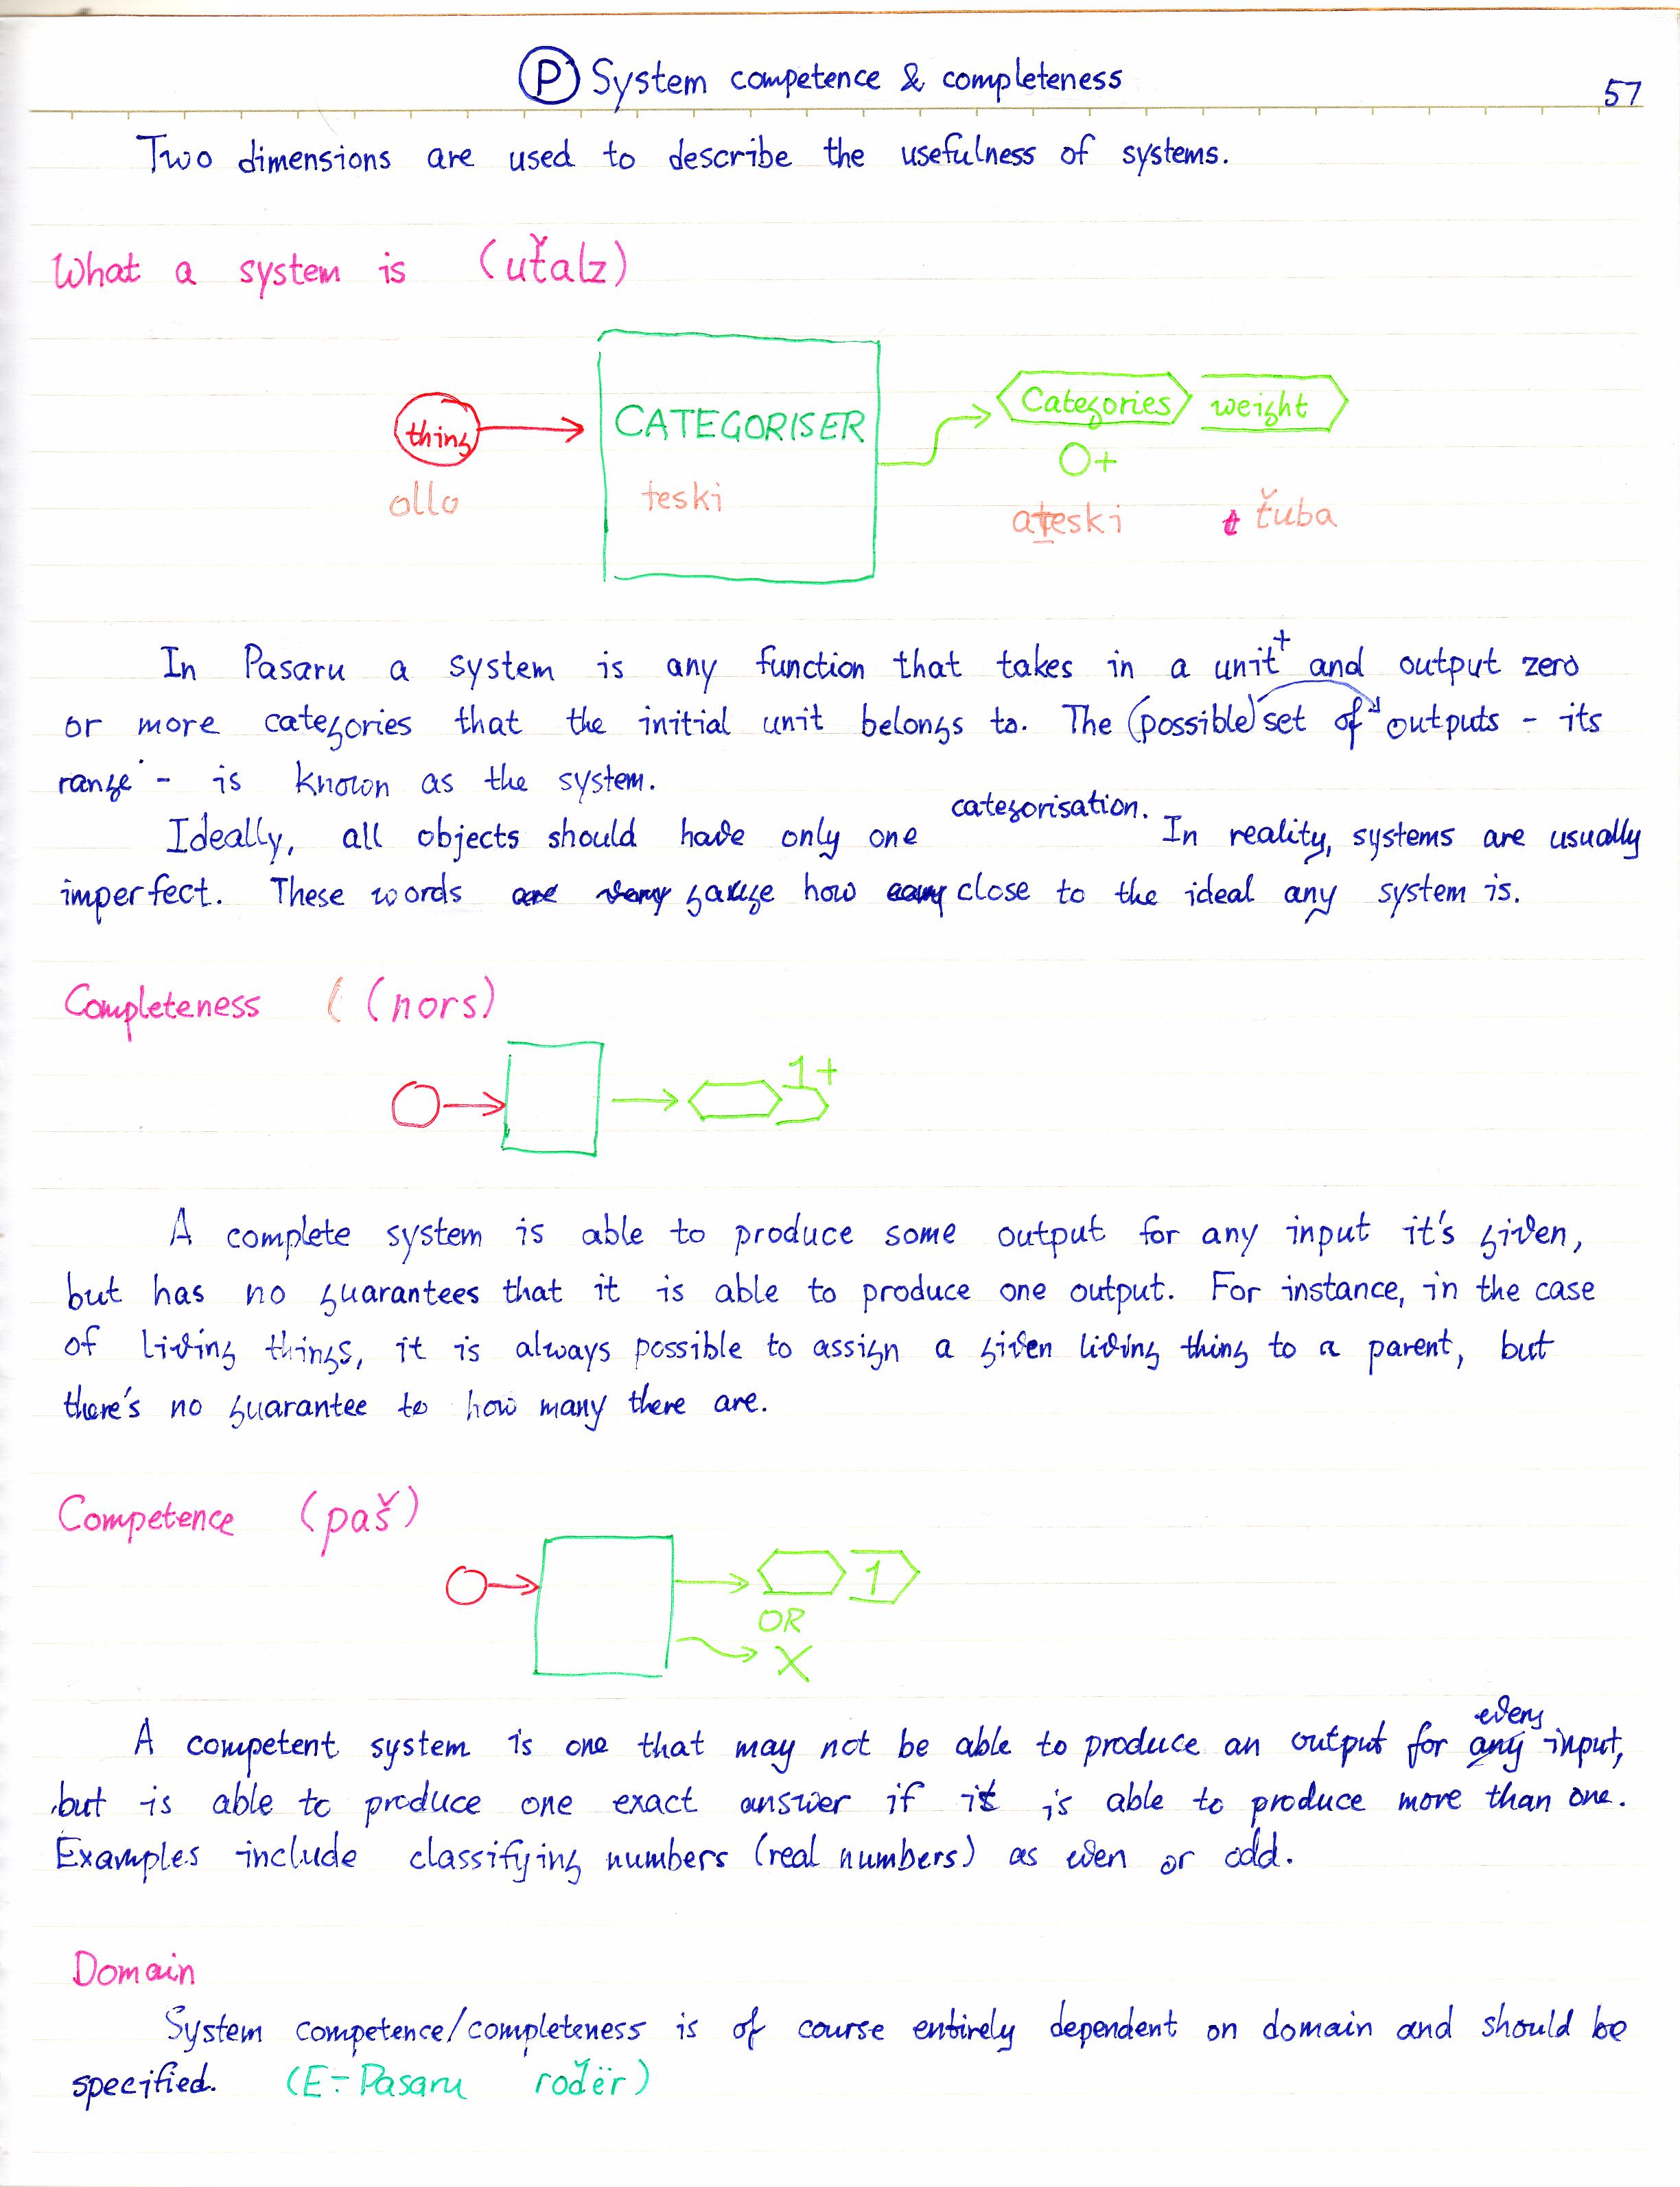 Ⓟ System competence & completeness
57
Two dimensions are used to describe the usefulness of systems.
What a system is (uťalz)
thing
CATEGORISER
Categories
weight
0+
ollo
teski
ateski
ťuba
In Pasaru a system is any function that takes in a unit⁺ and output zero
or more categories that the initial unit belongs to. The (possible) set of outputs - its
range - is known as the system.
Ideally, all objects should have only one categorisation. In reality, systems are usually
imperfect. These words gauge how close to the ideal any system is.
Completeness (nors)
1+
A complete system is able to produce some output for any input it's given,
but has no guarantees that it is able to produce one output. For instance, in the case
of living things, it is always possible to assign a given living thing to a parent, but
there's no guarantee to how many there are.
Competence (paš)
1
OR
X
A competent system is one that may not be able to produce an output for every input,
but is able to produce one exact answer if it is able to produce more than one.
Examples include classifying numbers (real numbers) as even or odd.
Domain
System competence/completeness is of course entirely dependent on domain and should be
specified. (E÷Pasaru roďër)